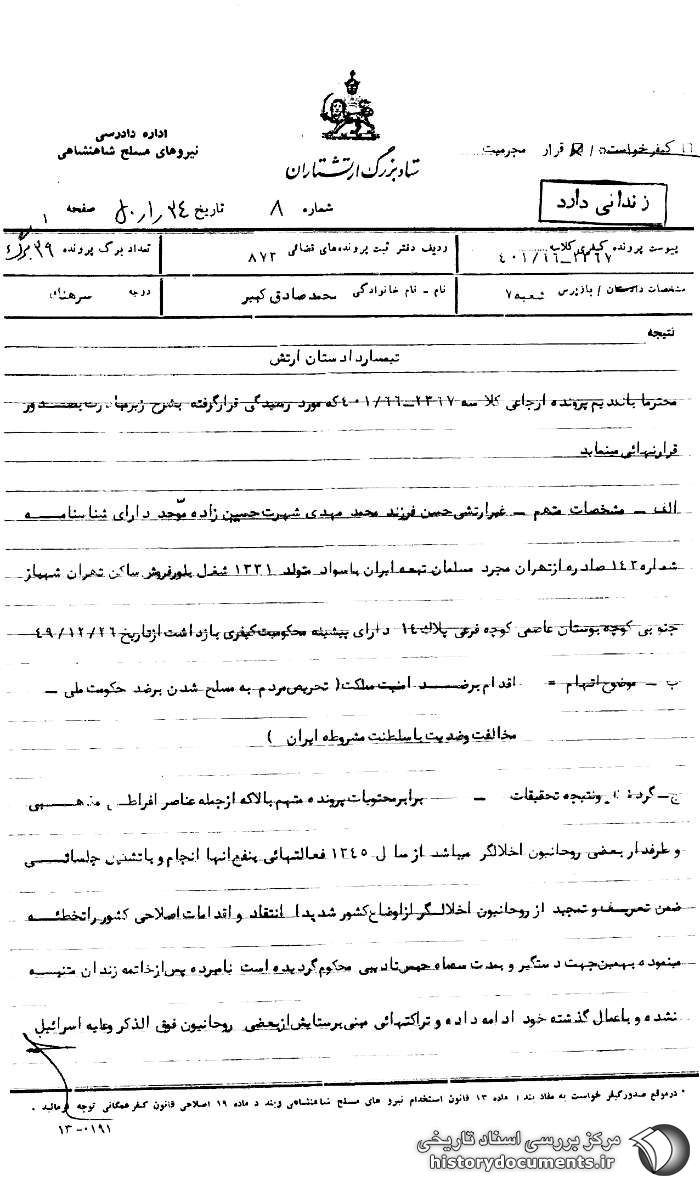 اداره دادرسی
نیروهای مسلح شاهنشاهی
ستاد بزرگ ارتشتاران
کیفرخواست / قرار مجرمیت
زندانی دارد
شماره ۸ تاریخ ۵۰/۱/۲۴ صفحه ۱
پیوست پرونده کیفری کلاسه ۲۳۶۷-۴۰۱/۱۶
ردیف دفتر ثبت پرونده‌های قضائی ۸۷۲
تعداد برگ پرونده ۳۹ برگ
مشخصات دادستان / بازپرس شعبه ۷
نام - نام خانوادگی محمد صادق کهیر
درجه سرهنگ
نتیجه
تیمسار دادستان ارتش
محترما با تقدیم پرونده ارجاعی کلاسه ۲۳۶۷-۴۰۱/۶۶ که مورد رسیدگی قرار گرفته بشرح زیر مبادرت بصدور
قرار نهائی مینماید
الف - مشخصات متهم - غیرارتشی حسن فرزند محمد مهدی شهرت حسین زاده موحد دارای شناسنامه
شماره ۱۴۲ صادره از تهران مجرد مسلمان تبعه ایران باسواد متولد ۱۳۳۱ شغل بلورفروش ساکن تهران شهباز
جنوبی کوچه بوستان عاصمی کوچه فرعی پلاک ۱۴ دارای پیشینه محکومیت کیفری بازداشت از تاریخ ۴۹/۱۲/۲۶
ب - موضوع اتهام = اقدام برضد امنیت مملکت ( تحریص مردم به مسلح شدن برضد حکومت ملی -
مخالفت و ضدیت با سلطنت مشروطه ایران )
ج - گردش و نتیجه تحقیقات - برابر محتویات پرونده متهم بالا که از جمله عناصر افراطی مذهبی
و طرفدار بعضی روحانیون اخلالگر میباشد از سال ۱۳۴۵ فعالتهائی بنفع آنها انجام و با تشکیل جلساتی
ضمن تعریف و تمجید از روحانیون اخلالگر از اوضاع کشور شدیدا انتقاد و اقدامات اصلاحی کشور را تخطئه
مینموده بهمین جهت دستگیر و بمدت سه ماه حبس تادیبی محکوم گردیده است نامبرده پس از خاتمه زندان متنبه
نشده و باعمال گذشته خود ادامه داده و تراکتهائی مبنی بر ستایش از بعضی روحانیون فوق الذکر وعلیه اسرائیل
* در موقع صدور کیفر خواست به مفاد بند ۱ ماده ۱۳ قانون استخدام نیرو های مسلح شاهنشاهی و بند د ماده ۱۹ اصلاحی قانون کیفر همگانی توجه فرمائید .
۱۳-۰۱۹۱
مرکز بررسی اسناد تاریخی
historydocuments.ir